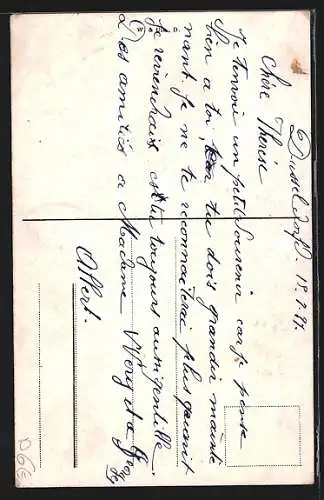 Dusseldorf. 18.9.27.
Chère Therèse
Je tenvoi un petit Souvenir car je pense
bien a toi, tu dois grandir mainte
nant je ne te reconnaîterai plus quand
je reviendrais es tu toujours aussi gentille.
Des amitiés a Madame et a
Albert.